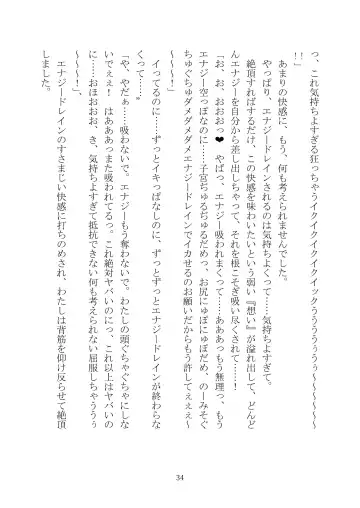 っ、これ気持ちよすぎる狂っちゃうイクイクイクイクイックうううううぅうぅ〜〜〜〜
!!」
　あまりの快感に、もう、何も考えられませんでした。
　やっぱり、エナジードレインされるのは気持ちよくって……気持ちよすぎて。
　絶頂すればするだけ、この快感を味わいたいという弱い『想い』が溢れ出して、どんど
んエナジーを自分から差し出しちゃって、それを根こそぎ吸い尽くされて……！
「お、お、おおおっ♥　やばっ、エナジー吸われまくって……あああっもう無理っ、もう
エナジー空っぽなのに……子宮ぢゅるぢゅるだめっ、お尻にゅぽにゅぽだめ、のーみそぐ
ちゅぐちゅダメダメダメエナジードレインでイカせるのお願いだからもう許してぇぇぇ〜
〜〜〜！」
　イってるのに……ずっとイキっぱなしのに……ずっとずっとエナジードレインが終わらな
くって……
「や、やだぁ……吸わないで。エナジーもう奪わないで。わたしの頭ぐちゃぐちゃにしな
いでぇぇ！　はあああっまた吸われてるっ。これ絶対ヤバいのにっ、これ以上はヤバいの
に……おほおおお、き、気持ちよすぎて抵抗できない何も考えられない屈服しちゃううぅ
〜〜〜〜！」、
　エナジードレインのすさまじい快感に打ちのめされ、わたしは背筋を仰け反らせて絶頂
しました。
34